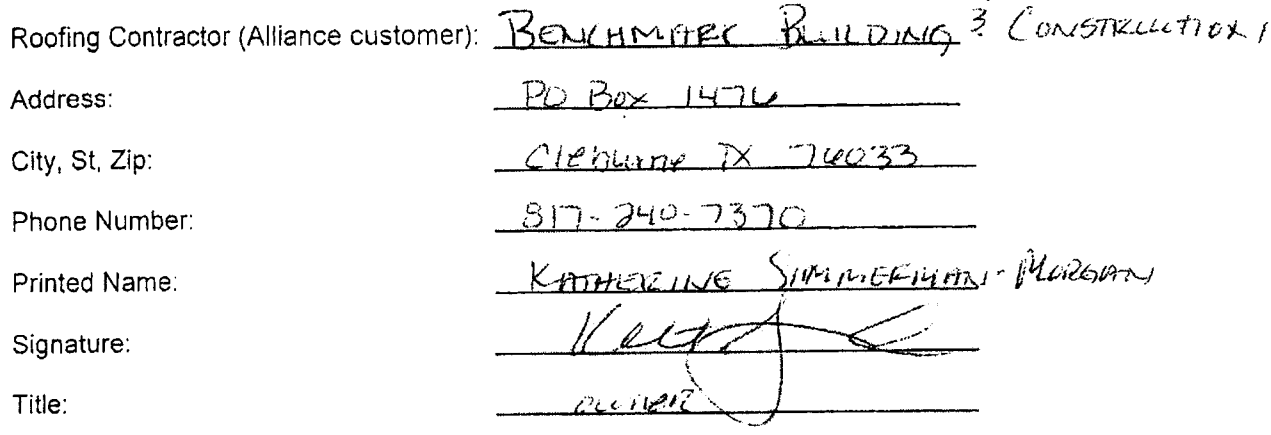 Roofing Contractor (Alliance customer): BENCHMARK BUILDING & CONSTRUCTION
Address: PO Box 1476
City, St, Zip: Cleburne TX 76033
Phone Number: 817-240-7370
Printed Name: KATHERINE SIMMERMAN-MORGAN
Signature:
Title: owner